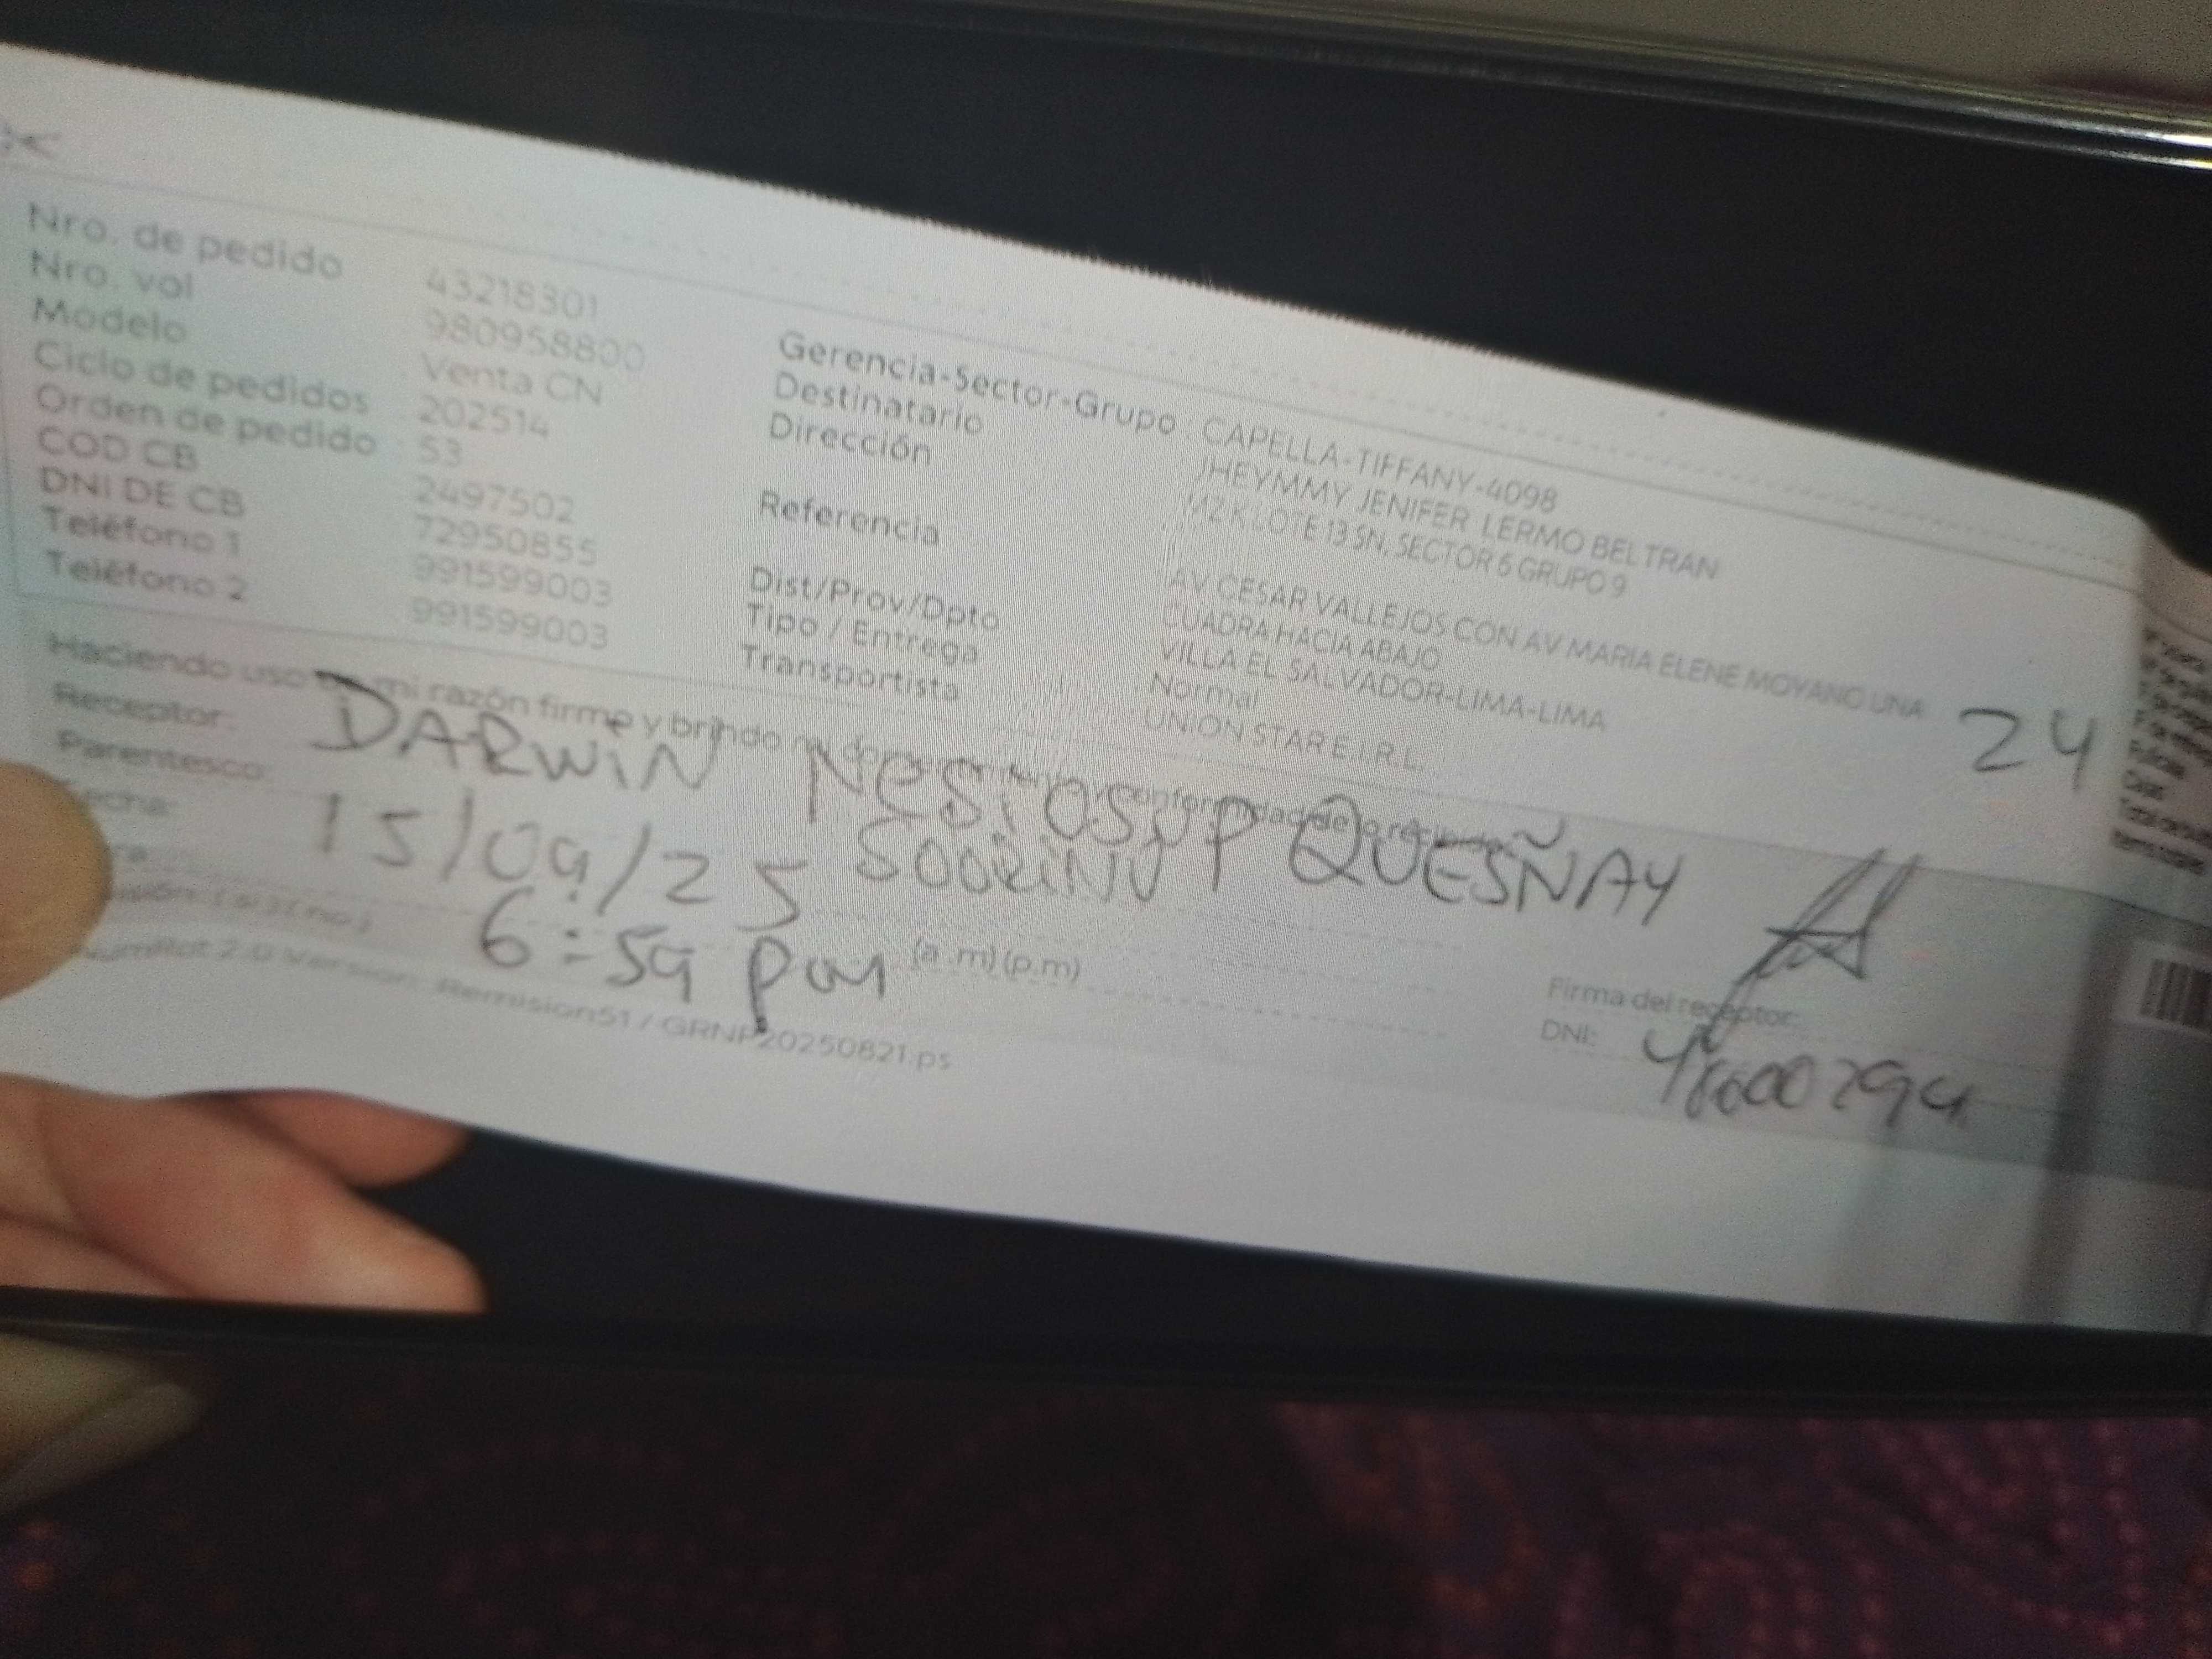 Nro. de pedido 43218301
Nro. vol 980958800
Modelo Venta CN
Ciclo de pedidos 202514
Orden de pedido : 53
COD CB 2497502
DNI DE CB 72950855
Teléfono 1 991599003
Teléfono 2 991599003
Gerencia-Sector-Grupo : CAPELLA-TIFFANY-4098
Destinatario JHEYMMY JENIFER LERMO BELTRAN
Dirección MZ K LOTE 13 SN, SECTOR 6 GRUPO 9
Referencia AV CESAR VALLEJOS CON AV MARIA ELENE MOYANO UNA
CUADRA HACIA ABAJO
Dist/Prov/Dpto VILLA EL SALVADOR-LIMA-LIMA
Tipo / Entrega : Normal
Transportista : UNION STAR E.I.R.L.
24
Haciendo uso de mi razón firme y brindo mi conformidad de lo
Receptor: DARWIN QUESÑAY
Parentesco:
15/09/25
6:59 pm (a.m) (p.m)
Firma del receptor:
DNI:
2.0 Version: Remision51 / GRNP20250821.ps